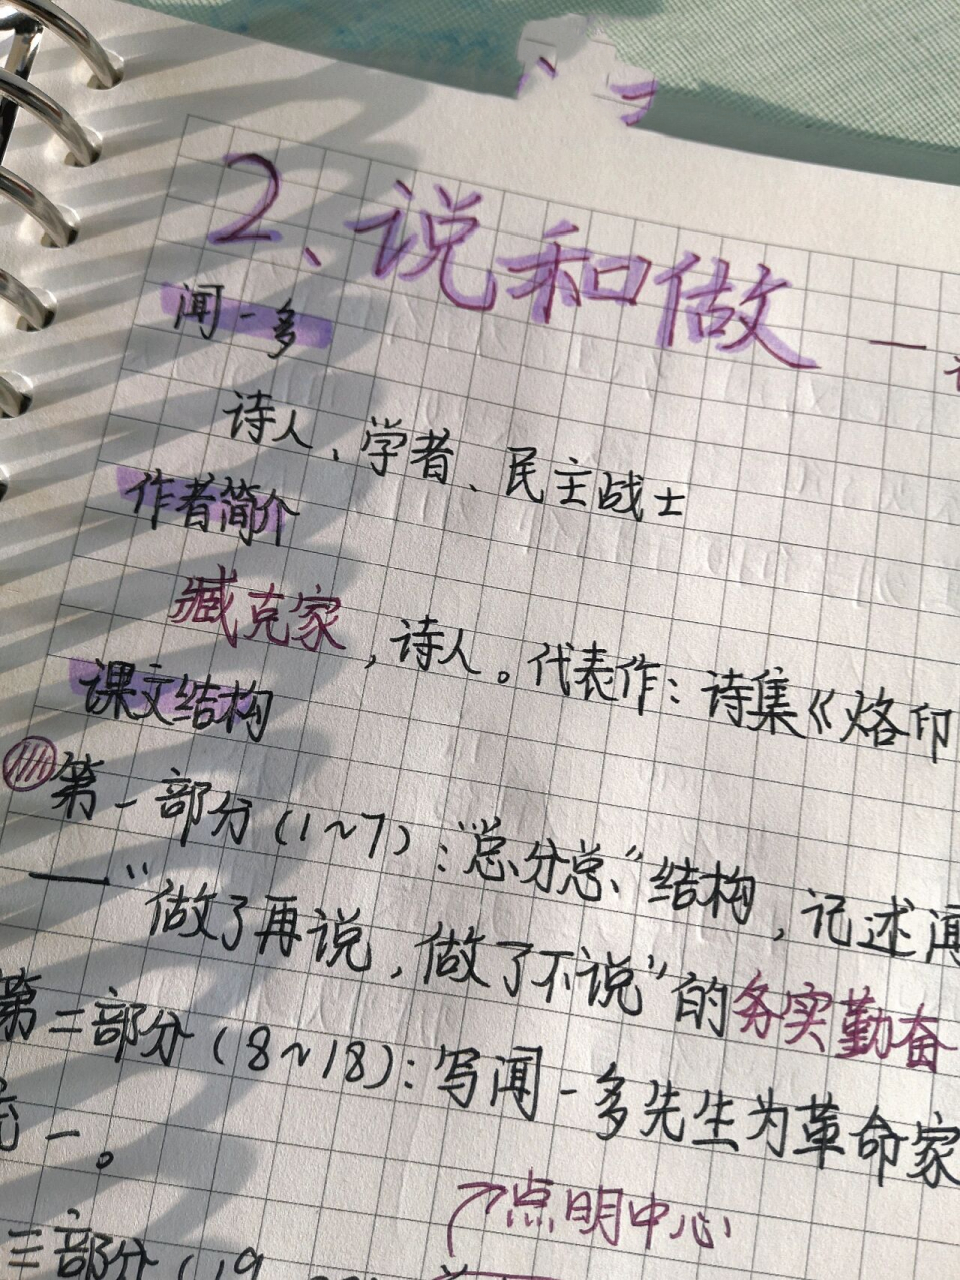 2、说和做 一
闻一多
诗人、学者、民主战士
作者简介
臧克家,诗人。代表作:诗集《烙印
课文结构
第一部分(1~7):"总分总"结构,记述闻
——"做了再说,做了不说"的务实勤奋
第二部分(8~18):写闻一多先生为革命家
一。
点明中心
三部分(19